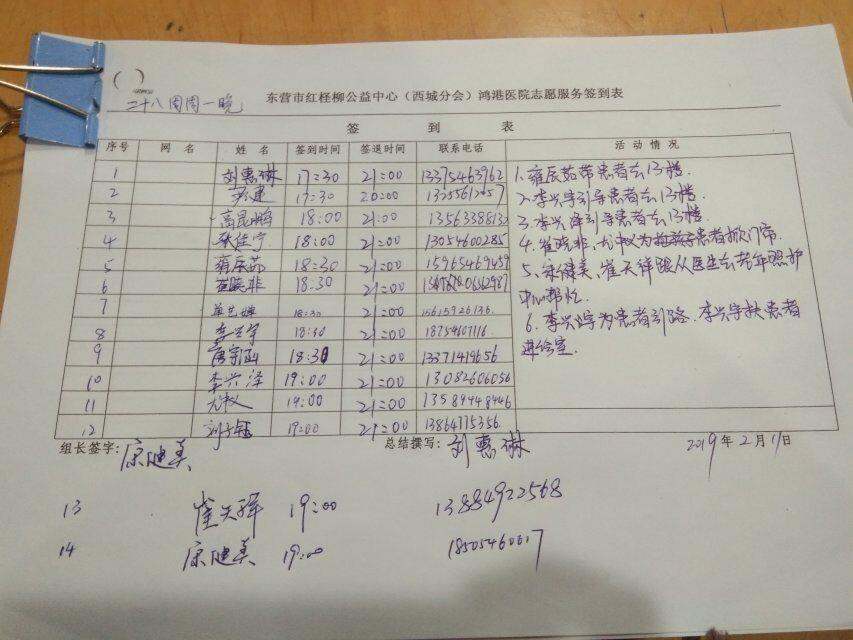 ( )
二十八周周一晚
东营市红柽柳公益中心(西城分会)鸿港医院志愿服务签到表
签 到 表
序号 网 名 姓 名 签到时间 签退时间 联系电话 活 动 情 况
1 刘惠琳 17:30 21:00 13375463962
2 17:30 20:00
3 高昆鹏 18:00 21:00 13563386132
4 耿佳宁 18:00 21:00 13054600285
5 雍辰茹 18:30 21:00 15965469459
6 崔晓非 18:30 21:00
7 18:30 21:00 15615926136
8 李兴宇 18:30 21:00 18754607116
9 唐宗涵 18:30 21:00 13371419656
10 李兴泽 19:00 21:00 13082606056
11 尤权 19:00 21:00 13589448446
12 19:00 21:00 13864775356
1.雍辰茹带患者去13楼.
2.李兴宇引导患者去13楼.
3.李兴泽引导患者去13楼.
4.崔晓非,尤权为患者掀门帘.
5.康健美,崔天祥跟从医生去老年照护
中心帮忙.
6.李兴宇为患者引路.李兴宇扶患者
进诊室.
组长签字:康健美 总结撰写:刘惠琳 2019年2月11日
13 19:00 13884922568
14 康健美 19:00